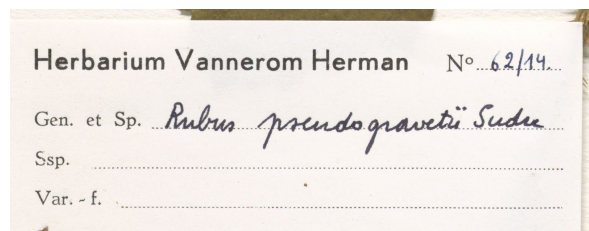 Herbarium Vannerom Herman No 62/14.
Gen. et Sp. Rubus pseudogravetii Sudre
Ssp.
Var. - f.